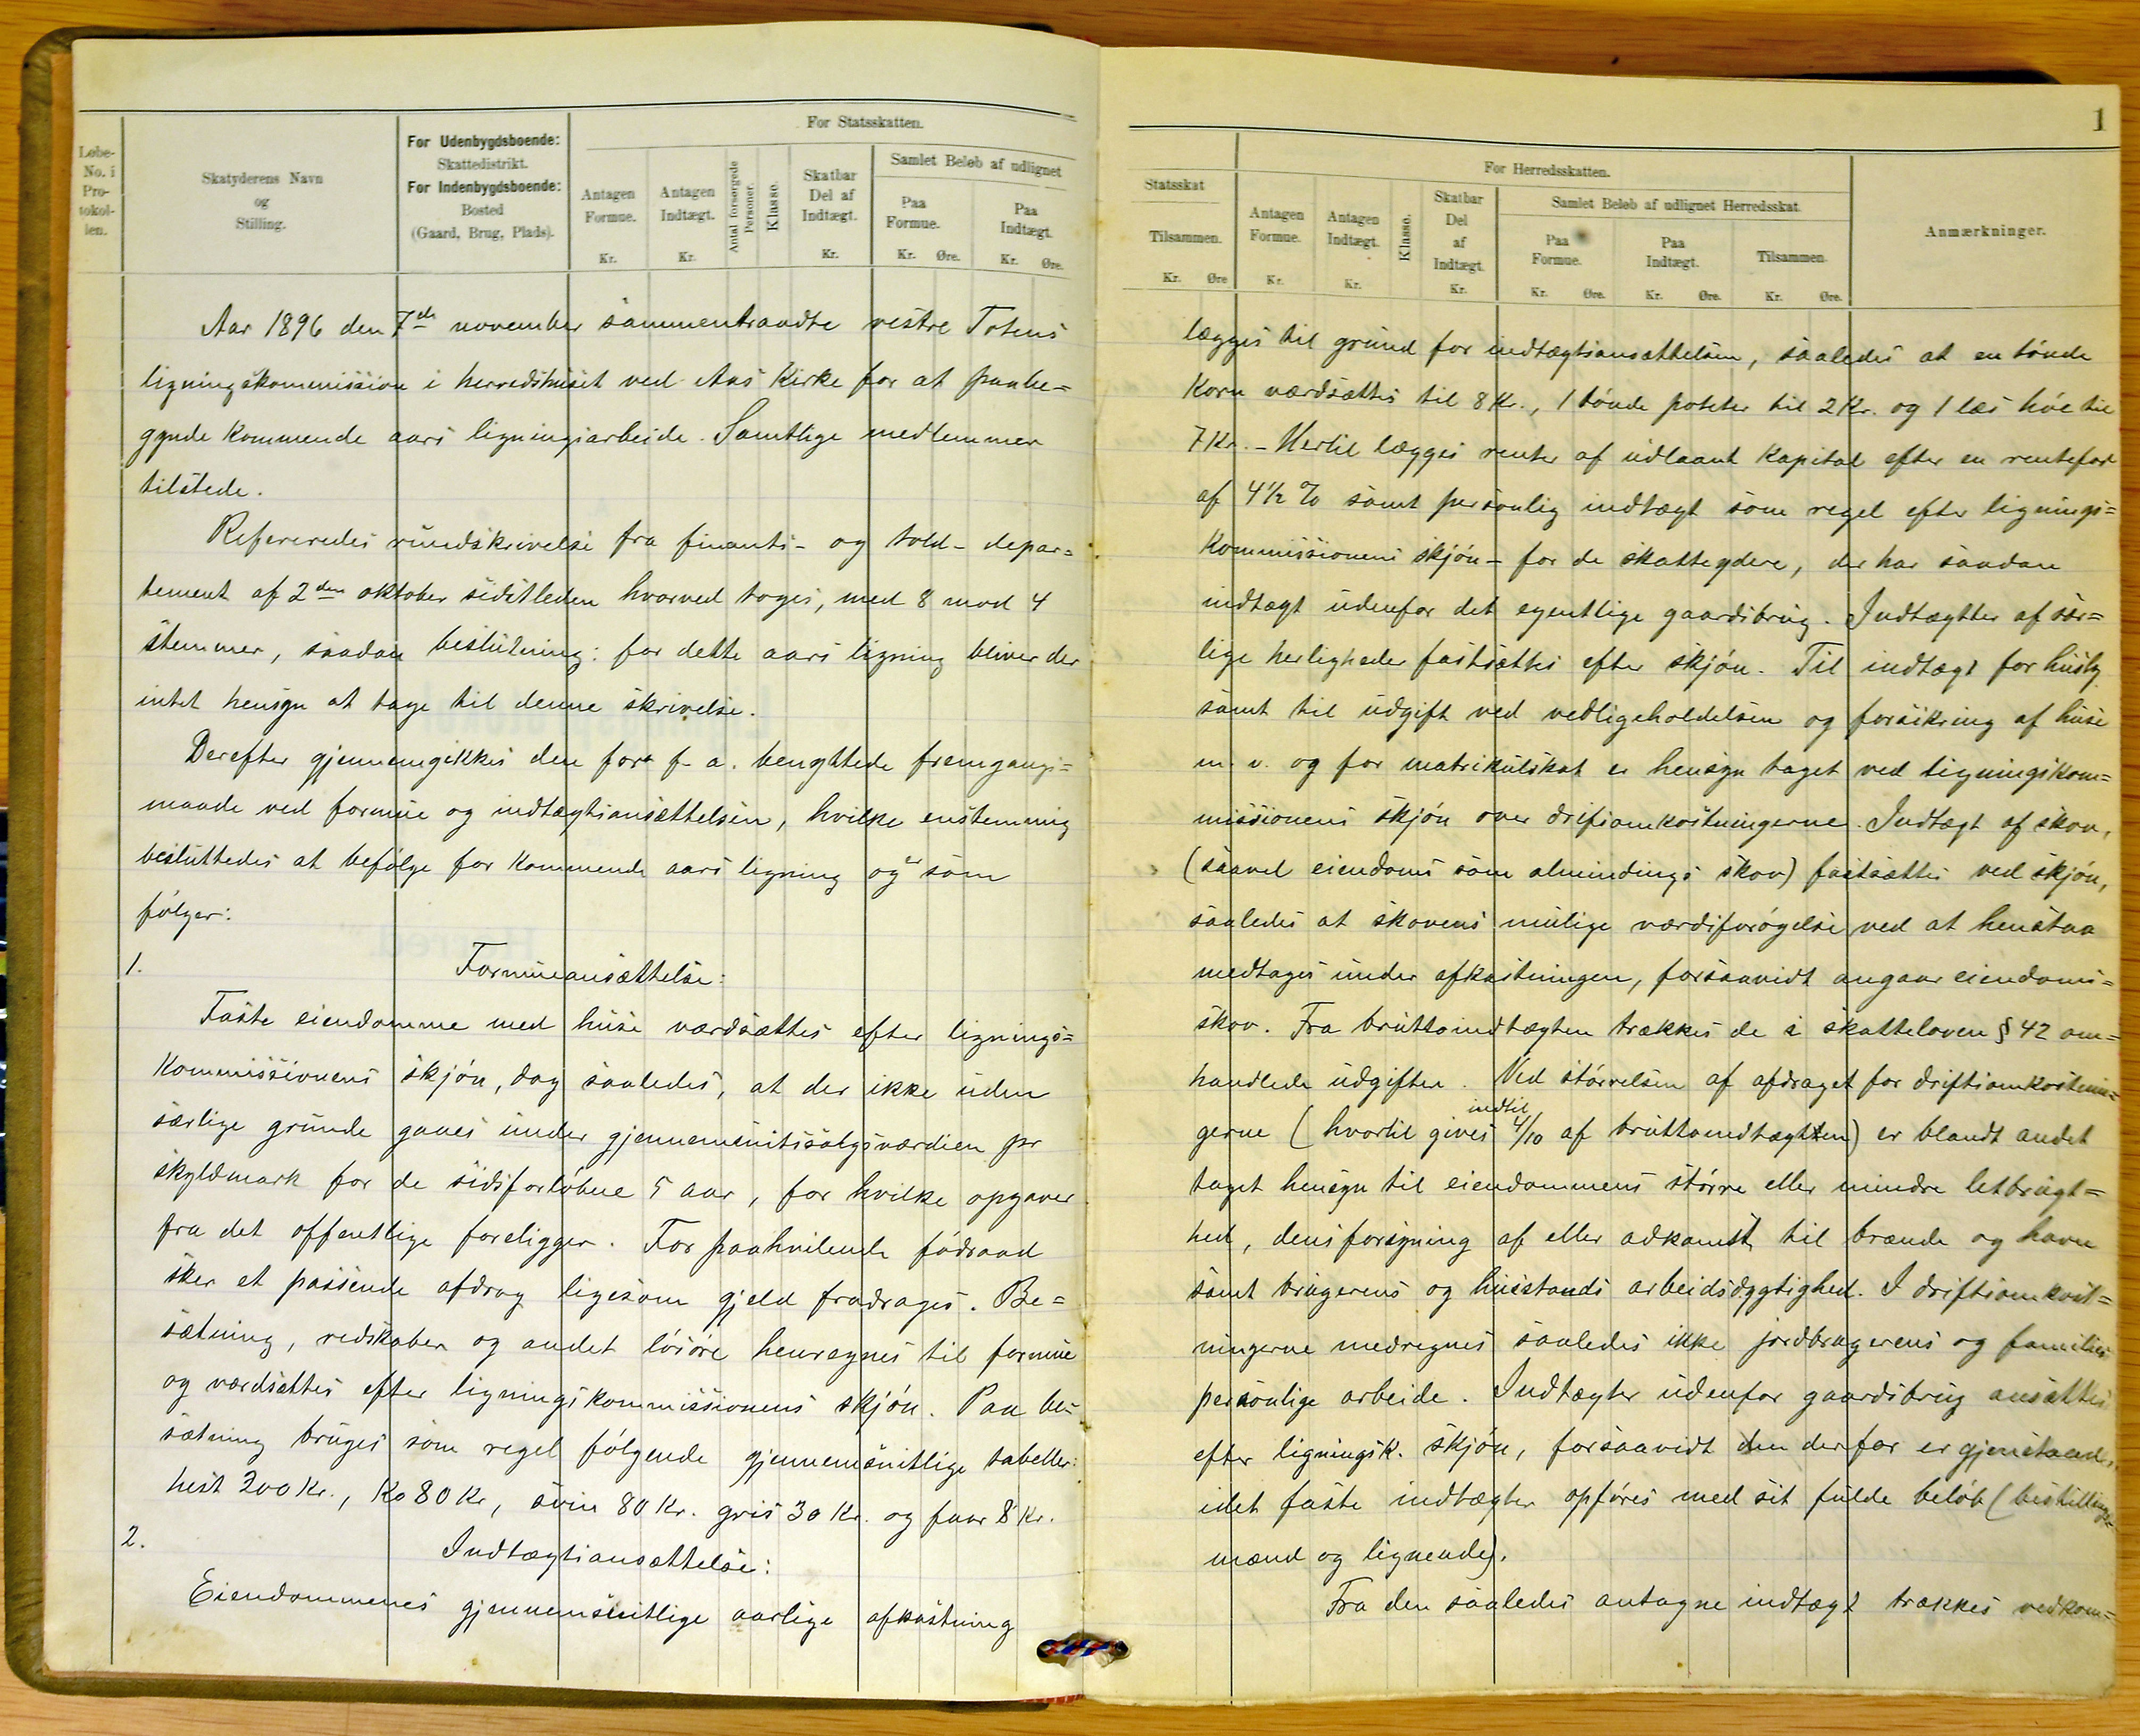 Løbe-
No. i
Pro-
tokol-
len.
Skatyderens Navn
og
Stilling.
For Udenbygdsboende:
Skattedistrikt.
For Indenbygdsboende:
Bosted
(Gaard, Brug, Plads).
For Statsskatten.
Antagen
Formue.
Kr.
Antagen
Indtægt.
Kr.
Antal forsørgede
Personer.
Klasse.
Skatbar
Del af
Indtægt.
Kr.
Samlet Beløb af udlignet
Paa
Formue.
Kr. Øre.
Paa
Indtægt.
Kr. Øre.
Aar 1896 den 7de november sammentraadte vestre Totens
ligningskommission i herredshuset ved Aas Kirke for at paabe=
gynde kommende aars ligningsarbeide. Samtlige medlemmer
tilstede.
Refereredes rundskrivelse fra finants- og told- depar=
tement af 2den oktober sidstleden hvorved toges, med 8 mod 4
stemmer, saadan beslutning: for dette aars ligning bliver der
intet hensyn at tage til denne skrivelse.
Derefter gjennemgikkes den for f. a. benyttede fremgangs=
maade ved formue og indtægtsansættelsen, hvilke enstemmig
besluttedes at befølge for kommende aars ligning og er som
følger:
1. Formueansættelse:
Faste eiendomme med huse værdsættes efter lignings=
kommissionens skjøn, dog saaledes, at der ikke uden
særlige grunde gaaes under gjennemsnitssalgsværdien pr
skyldmark for de sidsforløbne 5 aar, for hvilke opgaver
fra det offentlige foreligger. For paahvilende fødraad
sker et passende afdrag ligesom gjeld fradrages. Be=
sætning, redskaber og andet løsøre henregnes til formue
og værdsættes efter ligningskommissionens skjøn. Paa be=
sætning bruges som regel følgende gjennemsnitlige tabeller:
hest 200 Kr., Ko 80 Kr, svin 80 Kr. gris 30 Kr. og faar 8 Kr.
2. Indtægtsansættelse:
Eiendommenes gjennemsnitlige aarlige afkastning
1
Statsskat
Tilsammen.
Kr. Øre
For Herredsskatten.
Antagen
Formue.
Kr.
Antagen
Indtægt.
Kr.
Klasse.
Skatbar
Del
af
Indtægt.
Kr.
Samlet Beløb af udlignet Herredsskat.
Paa
Formue.
Kr. Øre.
Paa
Indtægt.
Kr. Øre.
Tilsammen.
Kr. Øre.
Anmærkninger.
lægges til grund for indtægtsansættelsen, saaledes at en tønde
Korn værdsættes til 8 Kr., 1 tønde poteter til 2 Kr. og 1 læs høe til
7 Kr. - Hertil lægges renter af udlaant Kapital efter en rentefod
af 4 1/2 % samt personlig indtægt som regel efter lignings=
kommissionens skjøn - for de skatteydere, der har saadan
indtægt udenfor det egentlige gaardsbrug. Indtægtter af sær=
lige herligheder fastsættes efter skjøn. Til indtægt for husly
samt til udgift ved vedligeholdelsen og forsikring af huse
m. v. og for matrikulskat er hensyn taget ved ligningskom=
missionens skjøn over driftsomkostningerne. Indtægt af skov,
(saavel eiendoms som almindings skov) fastsættes ved skjøn,
saaledes at skovens mulige værdiforøgelse ved at henstaa
medtages under afkastningen, forsaavidt angaar eiendoms=
skov. Fra bruttoindtægten trækkes de i skatteloven § 42 om=
handlede udgifter. Ved størrelsen af afdraget for driftsomkostnin=
gerne (hvortil gives indtil 4/10 af bruttoindtægtten) er blandt andet
taget hensyn til eiendommens større eller mindre letbrugt=
hed, dens forsyning af eller adkomst til brænde og havn
samt brugerens og husstands arbeidsdygtighed. I driftsomkost=
ningerne medregnes saaledes ikke jordbrugerens og families
personlige arbeide. Indtægter udenfor gaardsbrug ansættes
efter ligningsk. skjøn, forsaavidt den derfor er gjenstand,
idet faste indtægter opføres med sit fulde beløb (bestillings=
mænd og lignende).
Fra den saaledes antagne indtægt trækkes vedkom=